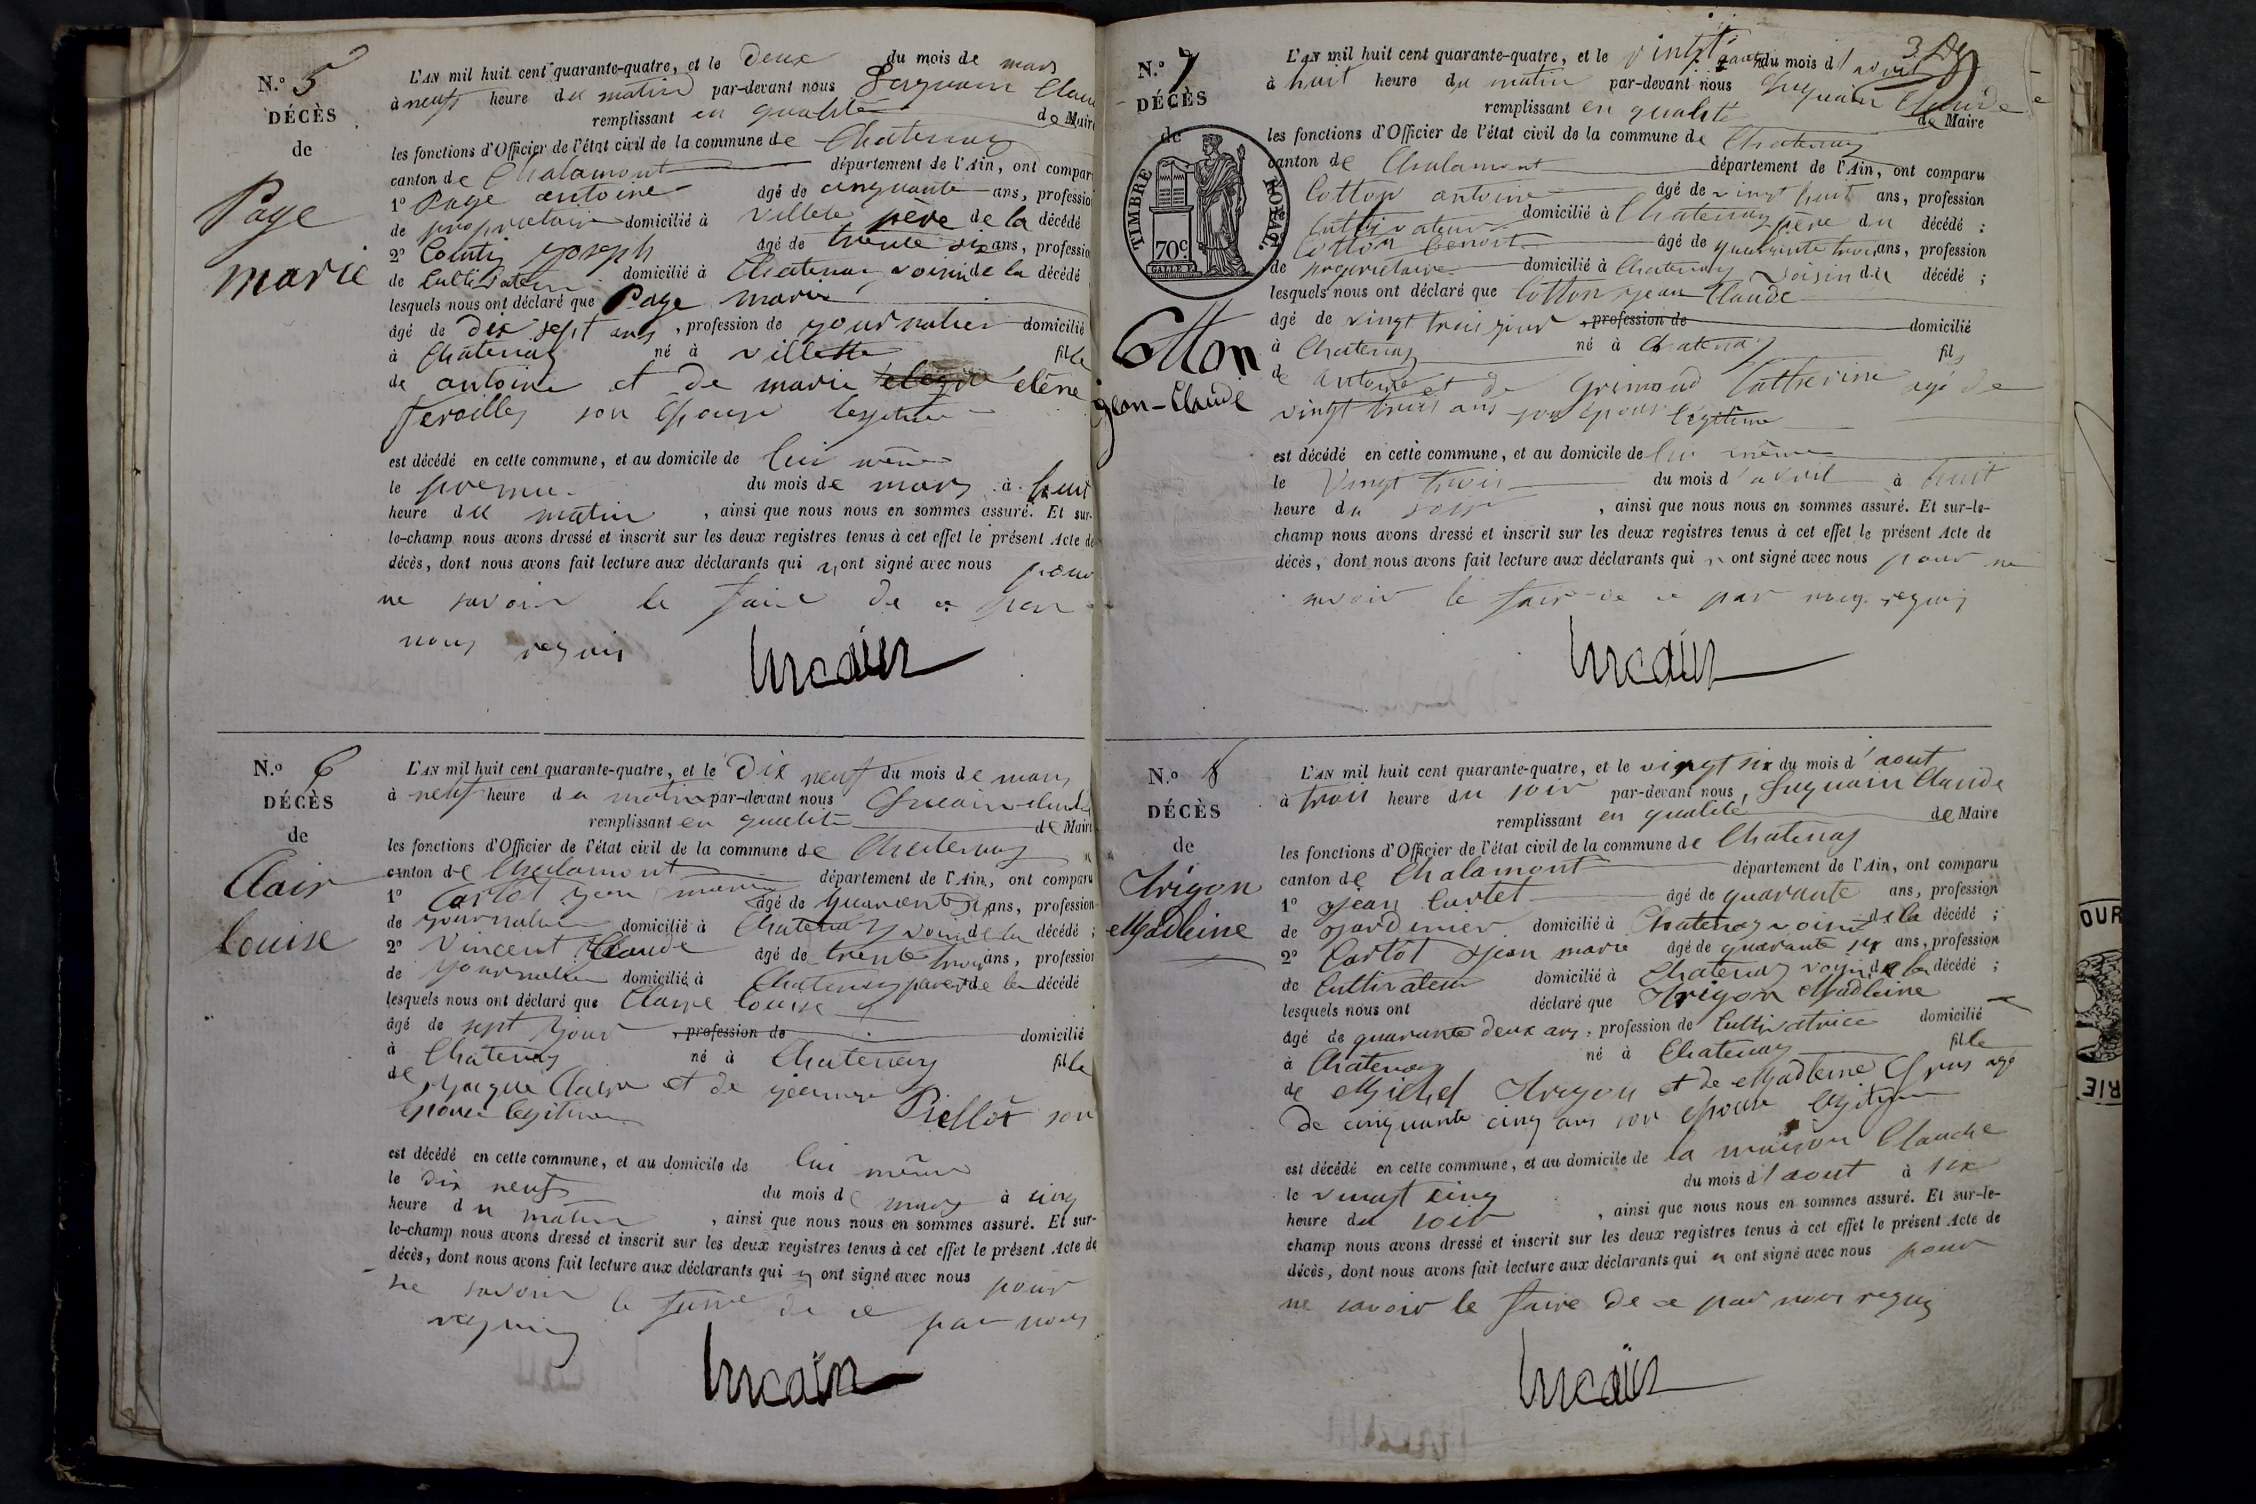 N.o 5
DÉCÈS
de
Page
marie
L'AN mil huit cent quarante-quatre, et le deux du mois de mars
à neuf heure du matin par-devant nous
remplissant en qualité de Maire
les fonctions d'Officier de l'état civil de la commune de Chatenay
canton de Chalamont département de l'Ain, ont compar
1o Page antoine âgé de cinquante ans, professio
de propriétaire domicilié à villete père de la décédé
2o Joseph âgé de trente six ans, professio
de Cultivateur domicilié à Chatenay voisin de la décédé
lesquels nous ont déclaré que Page marie
âgé de dix sept ans, profession de journalier domicilié
à Chatenay né à villette fille
de antoine et de marie élène
son épouse légitime
est décédé en cette commune, et au domicile de lui même
le premier du mois de mars à huit
heure du matin, ainsi que nous nous en sommes assuré. Et sur-
le-champ nous avons dressé et inscrit sur les deux registres tenus à cet effet le présent Acte de
décès, dont nous avons fait lecture aux déclarants qui n ont signé avec nous pour
ne savoir le faire de ce par
nous requis
N.o 6
DÉCÈS
de
Clair
Louise
L'AN mil huit cent quarante-quatre, et le Dix neuf du mois de mars
à neuf heure du matin par-devant nous
remplissant en qualité de Maire
les fonctions d'Officier de l'état civil de la commune de Chatenay
canton de Chalamont département de l'Ain, ont comparu
1o Cartot jean marie âgé de quarente six ans, profession
de journalier domicilié à Chatenay voisin de la décédé ;
2o Vincent Claude âgé de trente trois ans, profession
de journalier domicilié à Chatenay parent de la décédé
lesquels nous ont déclaré que Claire Louise
âgé de sept jour , profession de domicilié
à Chatenay né à Chatenay fille
de jaque Claire et de jeanne Piellot son
épouse légitime
est décédé en cette commune, et au domicile de lui même
le dix neuf du mois de mars à cinq
heure du matin, ainsi que nous nous en sommes assuré. Et sur-
le-champ nous avons dressé et inscrit sur les deux registres tenus à cet effet le présent Acte de
décès, dont nous avons fait lecture aux déclarants qui n ont signé avec nous pour
ne savoir le faire de ce par nous
requis
N.o 7
DÉCÈS
de
TIMBRE ROYAL.
70c.
Cotton
jean-Claude
L'AN mil huit cent quarante-quatre, et le vingt quatre du mois d'avril
à huit heure du matin par-devant nous Claude
remplissant en qualité de Maire
les fonctions d'Officier de l'état civil de la commune de Chatenay
canton de Chalamont département de l'Ain, ont comparu
Cotton antoine âgé de vingt huit ans, profession
Cultivateur domicilié à Chatenay père du décédé ;
Cotton benoit âgé de quarante trois ans, profession
de propriétaire domicilié à Chatenay voisin du décédé ;
lesquels nous ont déclaré que Cotton jean Claude
âgé de vingt trois jour , profession de domicilié
à Chatenay né à Chatenay fils
de antoine et de Grimaud Catherine agé de
vingt trois ans son épouse légitime
est décédé en cette commune, et au domicile de lui même
le Vingt trois du mois d'avril à huit
heure du soir, ainsi que nous nous en sommes assuré. Et sur-le-
champ nous avons dressé et inscrit sur les deux registres tenus à cet effet le présent Acte de
décès, dont nous avons fait lecture aux déclarants qui n ont signé avec nous pour ne
savoir le faire de ce par nous requis
N.o 8
DÉCÈS
de
Madleine
L'AN mil huit cent quarante-quatre, et le vingt six du mois d'aout
à trois heure du soir par-devant nous, Claude
remplissant en qualité de Maire
les fonctions d'Officier de l'état civil de la commune de Chatenay
canton de Chalamont département de l'Ain, ont comparu
1o jean Curtet âgé de quarante ans, profession
de jardinier domicilié à Chatenay voisin de la décédé ;
2o Cartot jean marie âgé de quarante six ans, profession
de Cultivateur domicilié à Chatenay voisin de la décédé ;
lesquels nous ont déclaré que Madleine
âgé de quarante deux ans, profession de Cultivatrice domicilié
à Chatenay né à Chatenay fille
de Michel et de Madleine agé
de cinquante cinq ans son épouse légitime
est décédé en cette commune, et au domicile de la maison Claude
le vingt cinq du mois d'aout à six
heure du soir, ainsi que nous nous en sommes assuré. Et sur-le-
champ nous avons dressé et inscrit sur les deux registres tenus à cet effet le présent Acte de
décès, dont nous avons fait lecture aux déclarants qui n ont signé avec nous pour
ne savoir le faire de ce par nous requis